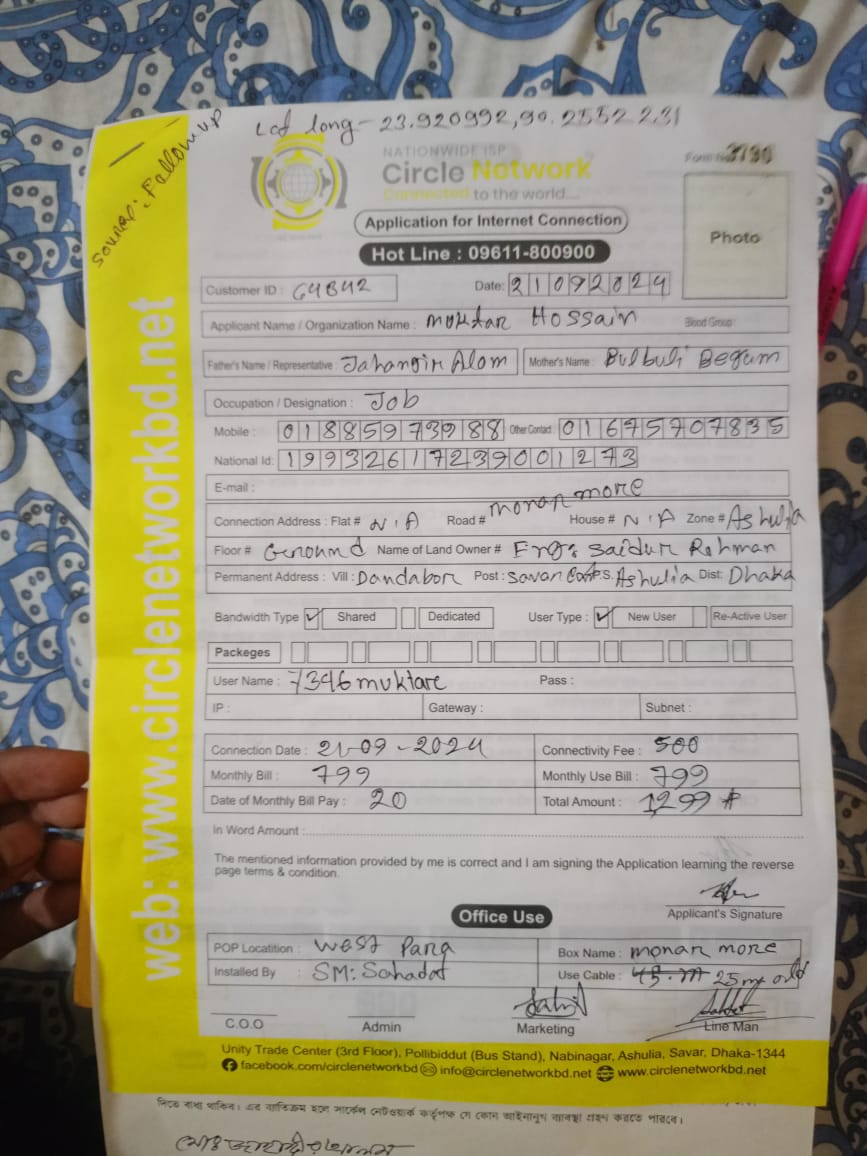 Lat long - 23.920992, 90.2552231
Source: Follow up
NATIONWIDE ISP
Circle Network
Connected to the world....
Form No 3790
Application for Internet Connection
Hot Line : 09611-800900
Photo
Customer ID : 64842
Date: 21092024
Applicant Name / Organization Name : Muktar Hossain Blood Group :
Father's Name / Representative : Jahangir Alom Mother's Name : Bulbuli Begum
Occupation / Designation : Job
Mobile : 01885973988 Other Contact 01675707835
National Id: 19932617239001273
E-mail :
Connection Address : Flat # N.A Road # monar more House # N.A Zone # Ashulia
Floor # Ground Name of Land Owner # Saidur Rahman
Permanent Address : Vill : Dandabor Post : Savar P.S. Ashulia Dist: Dhaka
Bandwidth Type ✓ Shared Dedicated User Type : ✓ New User Re-Active User
Packeges
User Name : 7346muktare Pass :
IP : Gateway : Subnet :
Connection Date : 21-09-2024 Connectivity Fee : 500
Monthly Bill : 799 Monthly Use Bill : 799
Date of Monthly Bill Pay : 20 Total Amount : 1299
In Word Amount :
The mentioned information provided by me is correct and I am signing the Application learning the reverse
page terms & condition.
Applicant's Signature
Office Use
POP Locatition : West Para Box Name : monar more
Installed By : SM: Sahadat Use Cable : 45.m 25m old
C.O.O Admin Marketing Line Man
Unity Trade Center (3rd Floor), Pollibiddut (Bus Stand), Nabinagar, Ashulia, Savar, Dhaka-1344
facebook.com/circlenetworkbd info@circlenetworkbd.net www.circlenetworkbd.net
web: www.circlenetworkbd.net
দিতে বাধ্য থাকিব। এর ব্যতিক্রম হলে সার্কেল নেটওয়ার্ক কর্তৃপক্ষ যে কোন আইনানুগ ব্যবস্থা গ্রহন করতে পারবে।